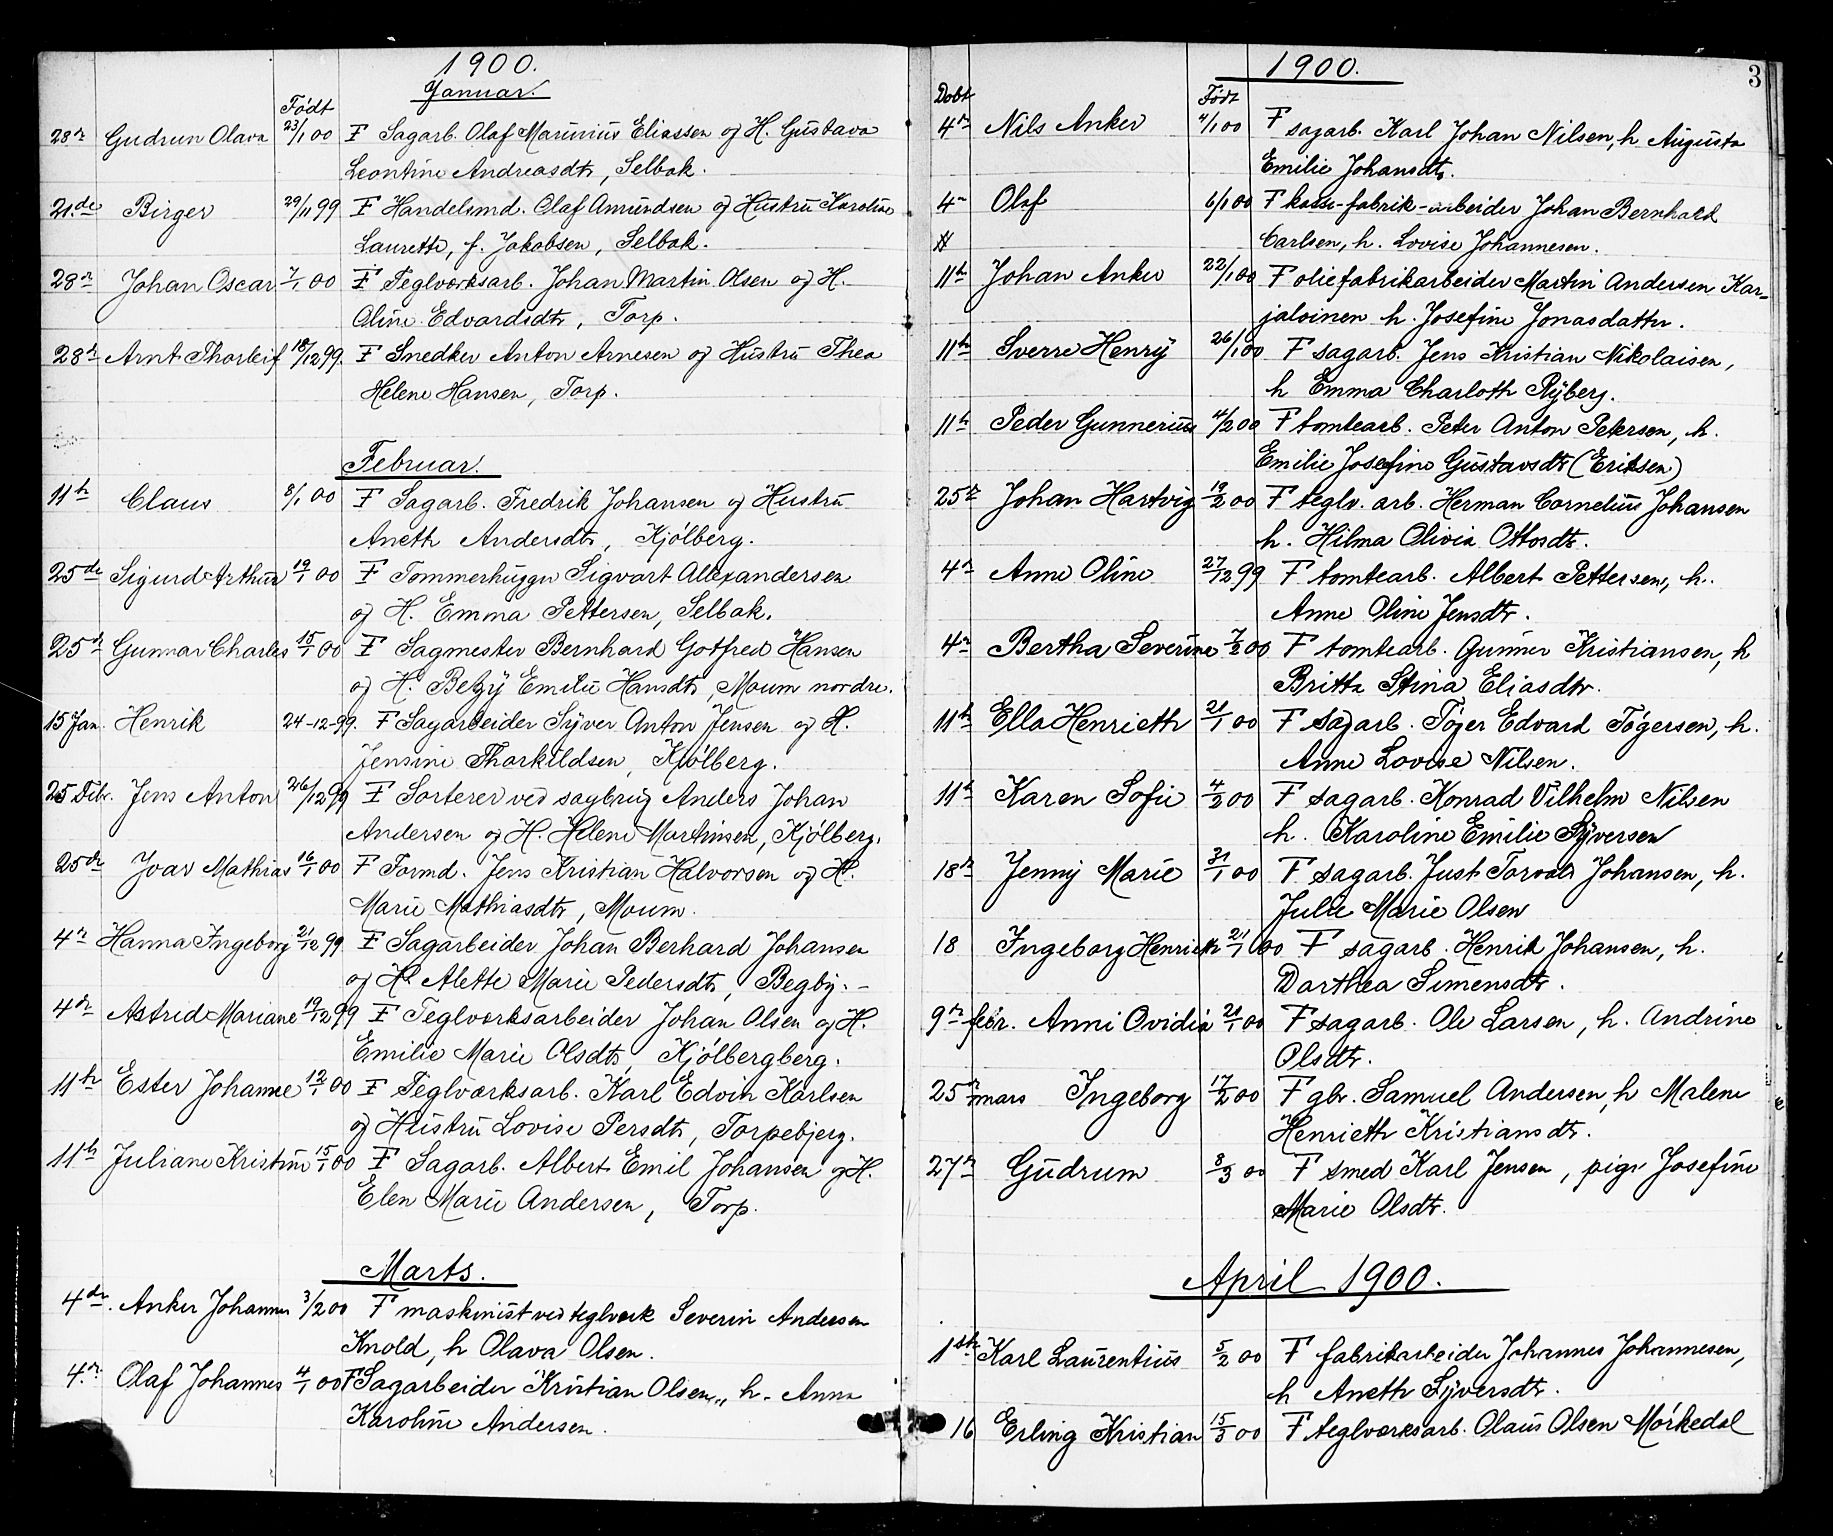 1900.
Januar.
Født
28n Gudrun Olava 23/1 00 F Sagarb. Olaf Marinius Eliassen og H. Gustava
Leontine Andreasdtr, Selbak.
21.de Birger 29/11 99 F Handelsmd. Olaf Amundsen og Hustru Karoline
Laurette, f. Jakobsen, Selbak.
28n Johan Oscar 7/1 00 F Teglværksarb. Johan Martin Olsen og H.
Oline Edvardsdtr, Torp.
28n Arnt Thorleif 18/12 99. F Snedker Anton Arnesen og Hustru Thea
Helene Hansen, Torp.
Februar.
11te Claus 8/1 00 F Sagarb. Fredrik Johansen og Hustru
Aneth Andersdtr, Kjölberg.
25de Sigurd Arthur 19/1 00 F Tømmerhugger Sigvart Alexandersen
og H. Emma Pettersen, Selbak.
25d Gunnar Charles 15/1 00 F Sagmester Bernhard Gotfred Hansen
og H. Betzy Emilie Hansdtr, Moum nordre.
15 Jan. Henrik 24-12-99. F Sagarbeider Syver Anton Jensen og H.
Jensine Thorkildsen, Kjölberg.
25 Febr. Jens Anton 26/12 99 F Sorterer ved sagbrug Anders Johan
Andersen og H. Helene Martinsen, Kjölberg.
25de Ivar Mathias 16/1 00 F Formd. Jens Kristian Halvorsen og H.
Marie Mathiasdtr, Moum.
4n Hanna Ingeborg 21/12 99. F Sagarbeider Johan Berhard Johansen
og H Alette Marie Pedersdtr, Begby. -
4de Astrid Mariane 19/12 99 F Teglværksarbeider Johan Olsen og H.
Emilie Marie Olsdtr, Kjölbergberg.
11te Ester Johanne 12/1 00 F Teglværksarb. Karl Edvin Karlsen
og Hustru Lovise Persdtr, Torpebjerg.
11te Juliane Kristine 15/1 00 F Sagarb. Albert Emil Johansen og H.
Elen Marie Andersen, Torp.
Marts.
4de. Anker Johannes 3/2 00 F maskinist ved teglværk Severin Andersen
Knold, h Olava Olsen.
4.n Olaf Johannes 4/1 00 F Sagarbeider Kristian Olsen, h. Anna
Karoline Andersen.
1900.
3
Døbt Født
4n Nils Anker 4/1 00 F sagarb. Karl Johan Nilsen, h Augusta
Emilie Johansdtr.
4n Olaf 6/1 00 F kasse-fabrik-arbeider Johan Bernhard
Carlsen, h. Lovise Johannesen.
11te Johan Anker 22/1 00 F oliefabrikarbeider Martin Andersen Kar-
jaloinen h. Josefine Jonasdatter.
11te Sverre Henry 26/1 00 F sagarb. Jens Kristian Nikolaisen,
h Emma Charloth Ryberg.
11te Peder Gunnerius 4/2 00 F tomtearb. Peter Anton Petersen, h.
Emilie Josefine Gustavsdtr (Eriksen)
25de Johan Hartvig 19/2 00 F teglv. arb. Herman Cornelius Johansen
h. Hilma Olivia Ottosdtr.
4n Anne Oline 27/12 99 F tomtearb. Albert Pettersen, h.
Anne Oline Jensdtr.
4n Bertha Severine 7/2 00 F tomtearb. Gunner Kristiansen, h
Britta Stina Eliasdtr.
11te Ella Henrieth 21/1 00 F sagarb. Töger Edvard Tögersen, h.
Anne Lovise Nilsen.
11te Karen Sofie 4/2 00 F sagarb. Konrad Vilhelm Nilsen
h. Karoline Emilie Syversen
18n Jenny Marie 31/1 00 F. sagarb. Just Torvald Johansen, h.
Julie Marie Olsen
18 Ingeborg Henrieth 21/1 00 F sagarb. Henrik Johansen, h.
Darthea Simensdtr.
9n febr. Anni Ovidia 21/1 00 F sagarb. Ole Larsen, h. Andrine
Olsdtr.
25n mars Ingeborg 17/2 00 F gbr. Samuel Andersen, h Malene
Henrieth Kristiansdtr.
27n Gudrum 8/3 00 F smed Karl Jensen, pige Josefine
Marie Olsdtr.
April 1900.
1ste Karl Laurentius 5/2 00 F fabrikarbeider Johannes Johannesen,
h Aneth Syversdtr.
16 Erling Kristian 15/3 00 F teglværksarb. Olaus Olsen Mörkedal